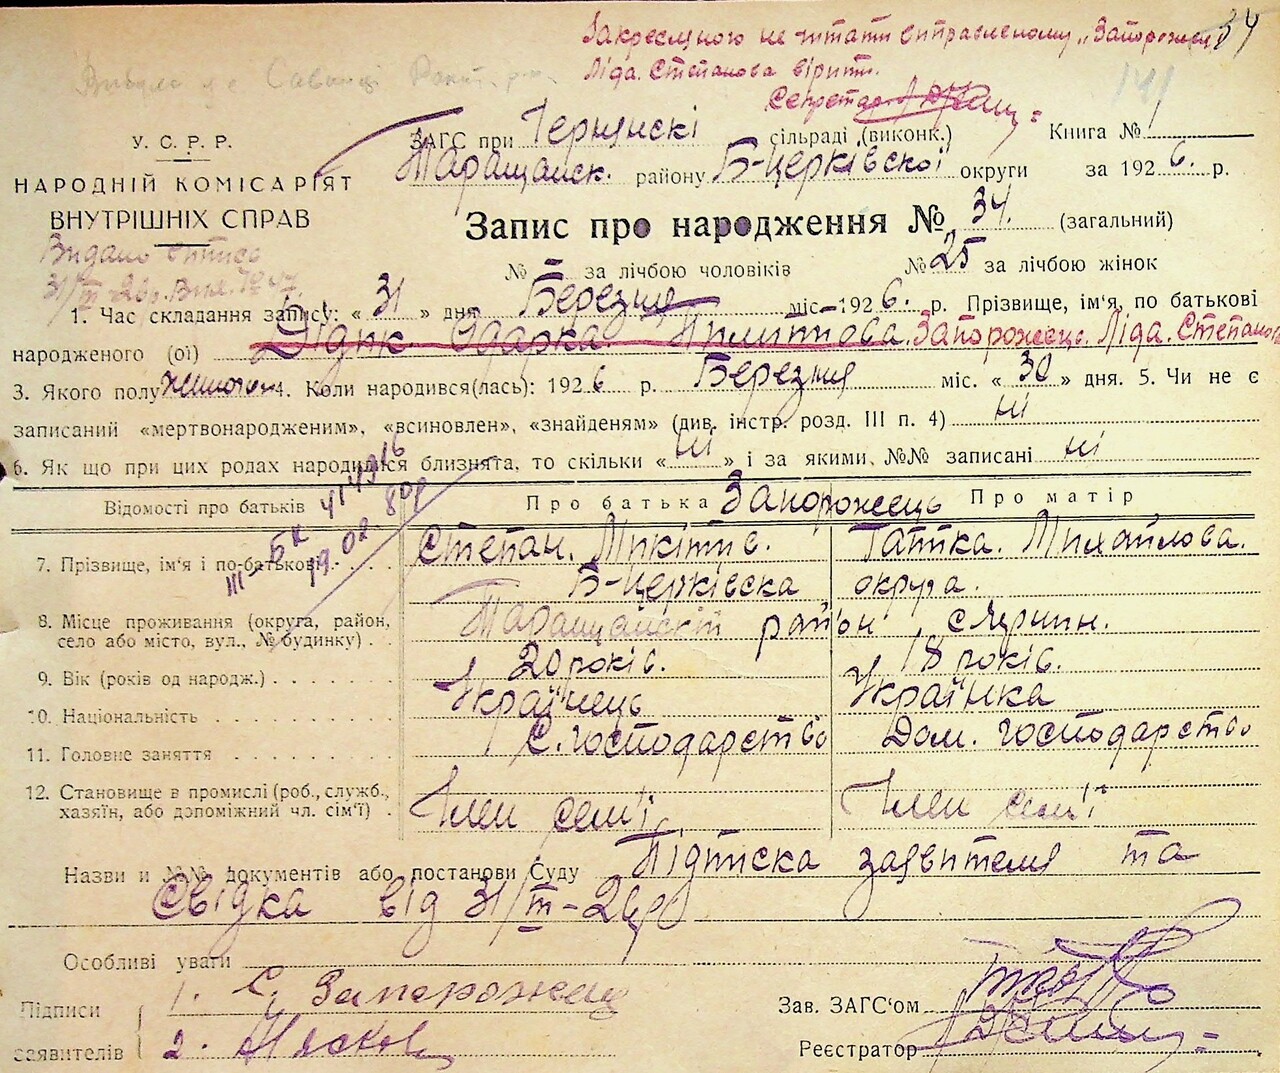 34
Закресленого не читати виправленому „Запорожець
Ліда. Степанова вірити.
Секретар
141
У. С. Р. Р.
НАРОДНІЙ КОМІСАРІЯТ
ВНУТРІШНІХ СПРАВ
ЗАГС при сільраді (виконк.) Книга № 1
Таращанськ. району Б-Церківскої округи за 1926. р.
Запис про народження № 34. (загальний)
№ – за лічбою чоловіків № 25 за лічбою жінок
Видано витяг
31/III-26р.
1. Час складання запису: « 31 » дня Березня міс. 1926. р. Прізвище, ім'я, по батькові
народженого (ої) Дідик Одарка. Запорожець. Ліда. Степанова
3. Якого полу жиночого 4. Коли народився(лась): 1926 р. Березня міс. « 30 » дня. 5. Чи не є
записаний «мертвонародженим», «всиновлен», «знайденям» (див. інстр. розд. III п. 4) ні
6. Як що при цих родах народилися близнята, то скільки « ні » і за якими, №№ записані ні
Відомості про батьків Про батька Запорожець Про матір
III-БК 414916
19.02.80р
7. Прізвище, ім'я і по-батькові Степан. Микітів. Гапка. Михайлова.
Б-Церківска округа.
8. Місце проживання (округа, район,
село або місто, вул., № будинку) Таращанскій район с.
9. Вік (років од народж.) 20 років. 18 років.
10. Національність Українець Українка
11. Головне заняття С. господарство Дом. господарство
12. Становище в промислі (роб., служб.,
хазяїн, або допоміжний чл. сім'ї) Член сем'ї Член сем'ї
Назви и №№ документів або постанови Суду Підписка заявителя та
Свідка від 31/III-26р
Особливі уваги
Підписи 1. С. Запорожец Зав. ЗАГС'ом
заявителів 2. Реєстратор